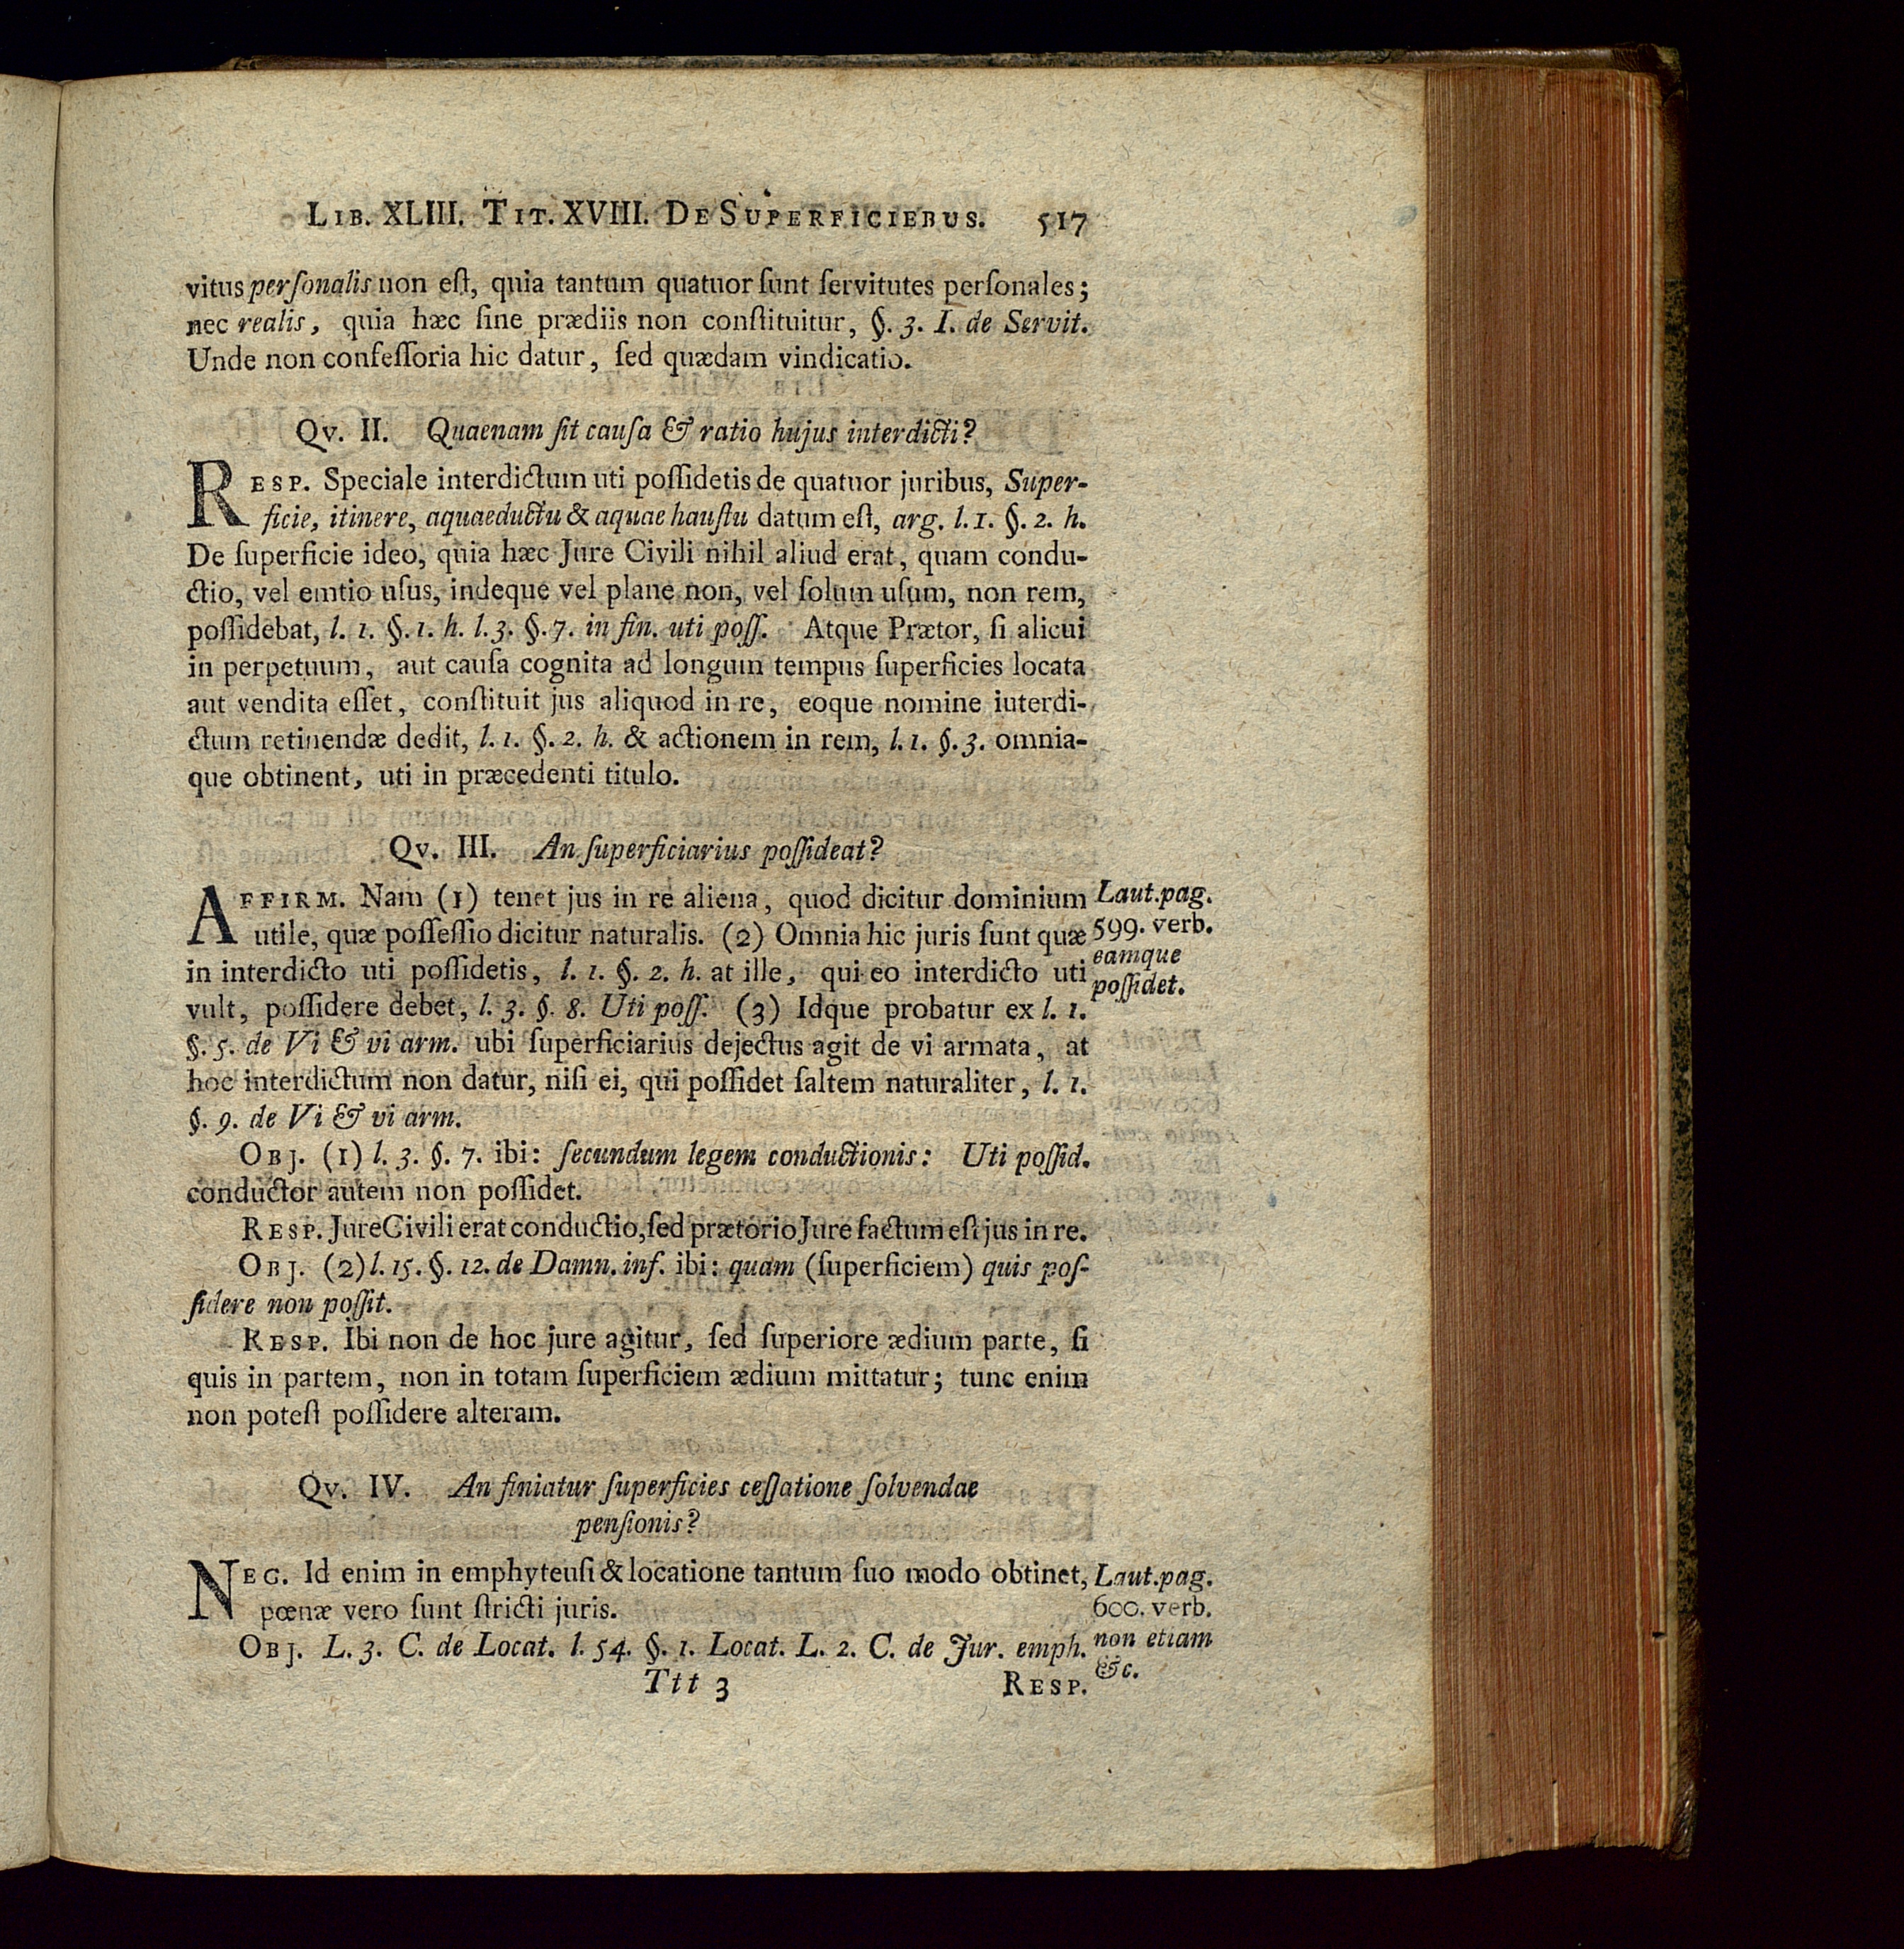 LIB. XLIII. TIT. XVIII. DE SUPERFICIEBUS. 517
vitus perſonalis non eſt, quia tantum quatuor ſunt ſervitutes perſonales;
nec realis, quia hæc ſine prædiis non conſtituitur, §. 3. I. de Servit.
Unde non confeſſoria hic datur, ſed quædam vindicatio.
Qv. II. Quaenam ſit cauſa & ratio hujus interdicti?
RESP. Speciale interdictum uti poſſidetis de quatuor juribus, Super-
ficie, itinere, aquaeductu & aquae hauſtu datum eſt, arg. l. 1. §. 2. h.
De ſuperficie ideo, quia hæc Jure Civili nihil aliud erat, quam condu-
ctio, vel emtio uſus, indeque vel plane non, vel ſolum uſum, non rem,
poſſidebat, l. 1. §. 1. h. l. 3. §. 7. in fin. uti poſſ. Atque Prætor, ſi alicui
in perpetuum, aut cauſa cognita ad longum tempus ſuperficies locata
aut vendita eſſet, conſtituit jus aliquod in re, eoque nomine iuterdi-
ctum retinendæ dedit, l. 1. §. 2. h. & actionem in rem, l. 1. §. 3. omnia-
que obtinent, uti in præcedenti titulo.
Qv. III. An ſuperficiarius poſſideat?
AFFIRM. Nam (1) tenet jus in re aliena, quod dicitur dominium
utile, quæ poſſeſſio dicitur naturalis. (2) Omnia hic juris ſunt quæ
in interdicto uti poſſidetis, l. 1. §. 2. h. at ille, qui eo interdicto uti
vult, poſſidere debet, l. 3. §. 8. Uti poſſ. (3) Idque probatur ex l. 1.
§. 5. de Vi & vi arm. ubi ſuperficiarius dejectus agit de vi armata, at
hoc interdictum non datur, niſi ei, qui poſſidet ſaltem naturaliter, l. 1.
§. 9. de Vi & vi arm.
Laut. pag.
599. verb.
eamque
poſſidet.
OBJ. (1) l. 3. §. 7. ibi: ſecundum legem conductionis: Uti poſſid.
conductor autem non poſſidet.
RESP. Jure Civili erat conductio, ſed prætorio Jure factum eſt jus in re.
OBJ. (2) l. 15. §. 12. de Damn. inf. ibi: quam (ſuperficiem) quis poſ-
ſidere non poſſit.
RESP. Ibi non de hoc jure agitur, ſed ſuperiore ædium parte, ſi
quis in partem, non in totam ſuperficiem ædium mittatur; tunc enim
non poteſt poſſidere alteram.
Qv. IV. An finiatur ſuperficies ceſſatione ſolvendae
penſionis?
NEG. Id enim in emphyteuſi & locatione tantum ſuo modo obtinet,
pœnæ vero ſunt ſtricti juris.
OBJ. L. 3. C. de Locat. l. 54. §. 1. Locat. L. 2. C. de Jur. emph.
Laut. pag.
600. verb.
non etiam
&c.
Ttt 3 RESP.